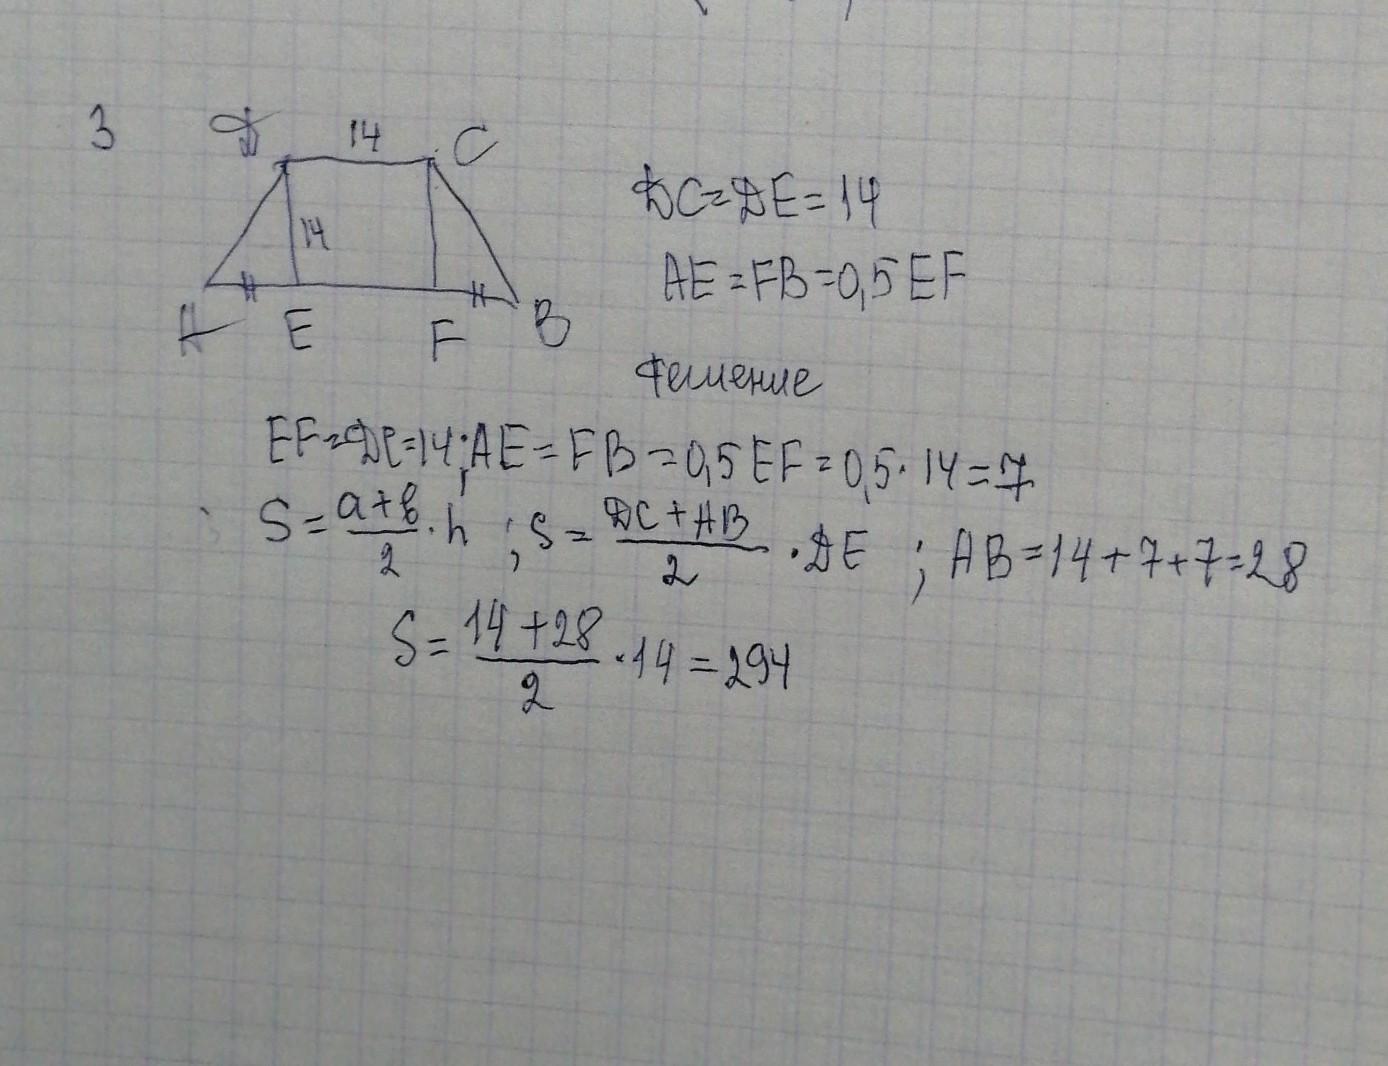 3
D 14 C
14
A E F B
DC=DE=14
AE=FB=0,5EF
Решение
EF=DC=14; AE=FB=0,5EF=0,5·14=7
S=\frac{a+b}{2}·h ; S=\frac{DC+AB}{2}·DE ; AB=14+7+7=28
S=\frac{14+28}{2}·14=294